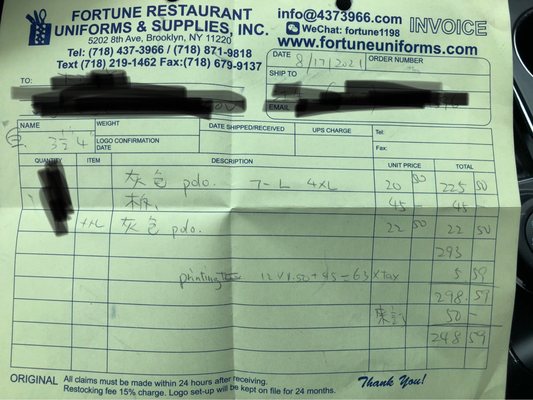 FORTUNE RESTAURANT
UNIFORMS & SUPPLIES, INC.
5202 8th Ave, Brooklyn, NY 11220
Tel: (718) 437-3966 / (718) 871-9818
Text (718) 219-1462 Fax:(718) 679-9137
info@4373966.com
WeChat: fortune1198
www.fortuneuniforms.com
INVOICE
DATE 8/17/2021 ORDER NUMBER
TO: SHIP TO
EMAIL
NAME WEIGHT DATE SHIPPED/RECEIVED UPS CHARGE Tel:
3 1/2 4 LOGO CONFIRMATION DATE Fax:
QUANTITY ITEM DESCRIPTION UNIT PRICE TOTAL
灰色 polo. 7-L 4XL 20 50 225 50
45 - 45 -
灰色 polo. 22 50 22 50
293
printing 12x1.50+45=63xTax 5 59
298.59
50 -
248 59
ORIGINAL All claims must be made within 24 hours after receiving.
Restocking fee 15% charge. Logo set-up will be kept on file for 24 months.
Thank You!